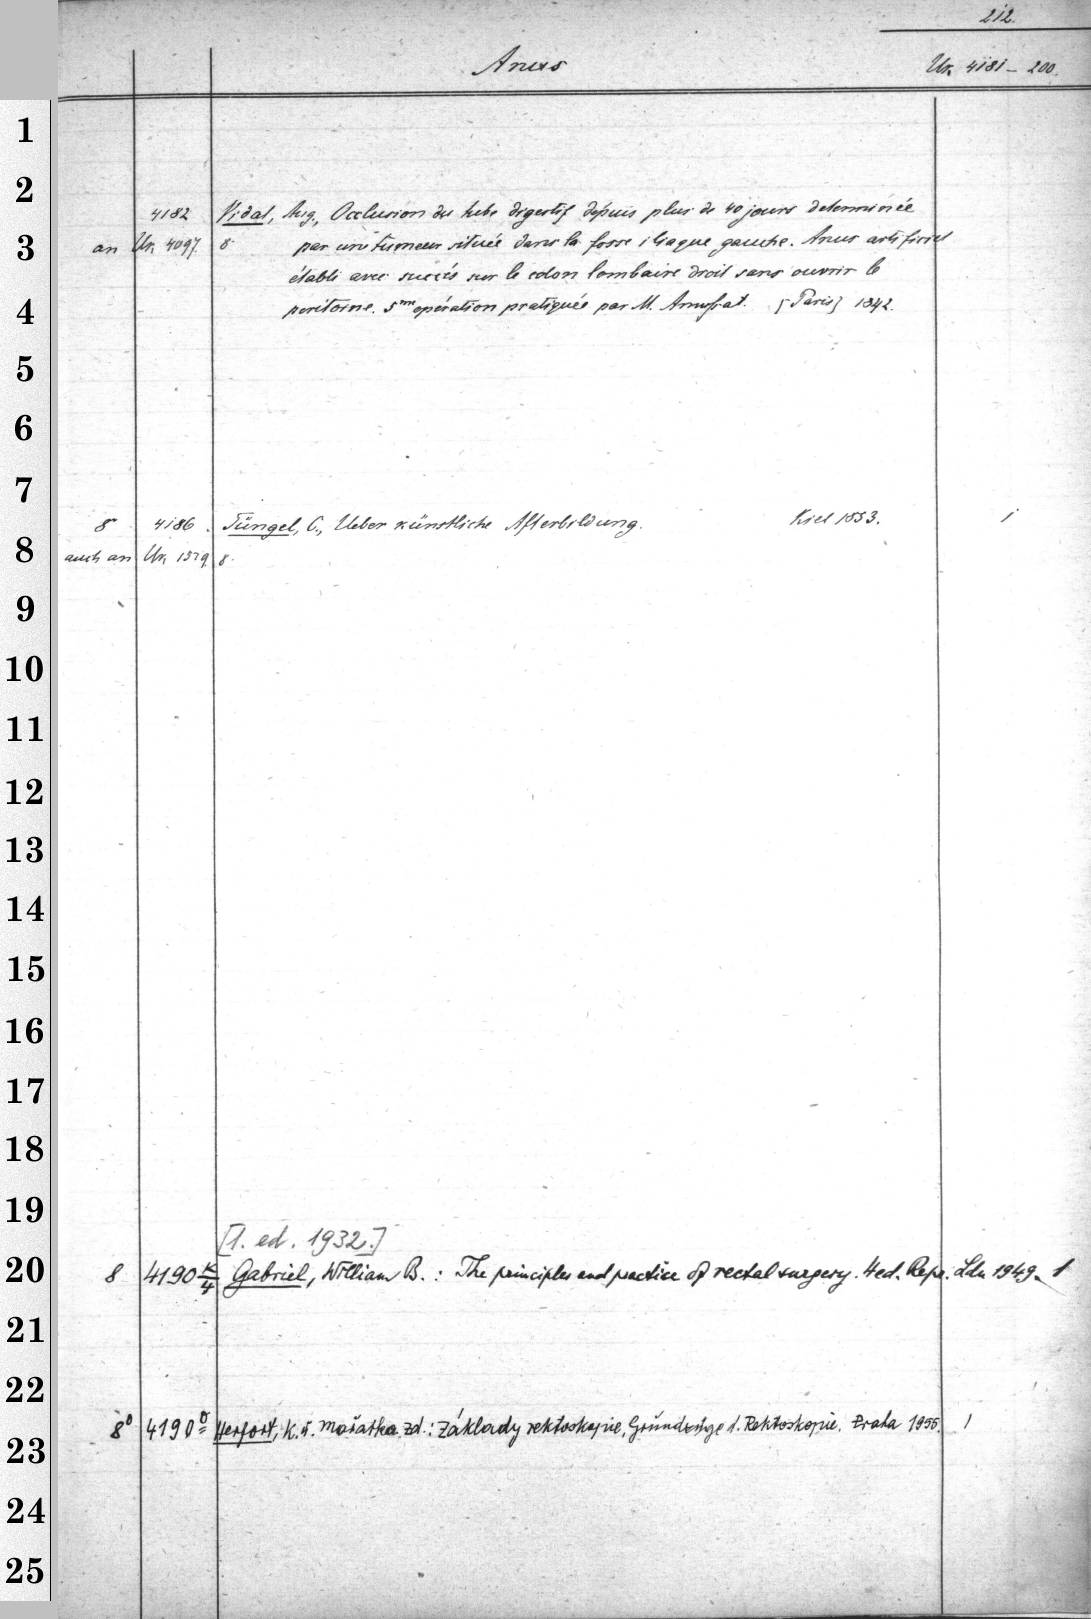 212.
Anus
Ur. 4181 – 200.
1
2
4182 Vidal, Aug., Occlusion du tube digestif depuis plus de 40 jours determinée
3
an Ur. 4097. 8. par une tumeur située dans la fosse iliaque gauche. Anus artificiel
établi avec succès sur le colon lombaire droit sans ouvrir le
4
peritoine. 5me opération pratiquée par M. Amussat. [Paris] 1842.
5
6
7
8 4186. Tüngel, C., Ueber künstliche Afterbildung. Kiel 1853. 1
8
auch an Ur. 1579. 8.
9
10
11
12
13
14
15
16
17
18
19
[1. ed. 1932.]
20
8 4190 K/4 Gabriel, William B. : The principles and practice of rectal surgery. 4ed. Repr. Ldn 1949. 1
21
22
8° 4190 Herfort, K. u. Mařatka. Zd.: Základy rektoskopie, Grundzüge d. Rektoskopie. Praha 1956. 1
23
24
25